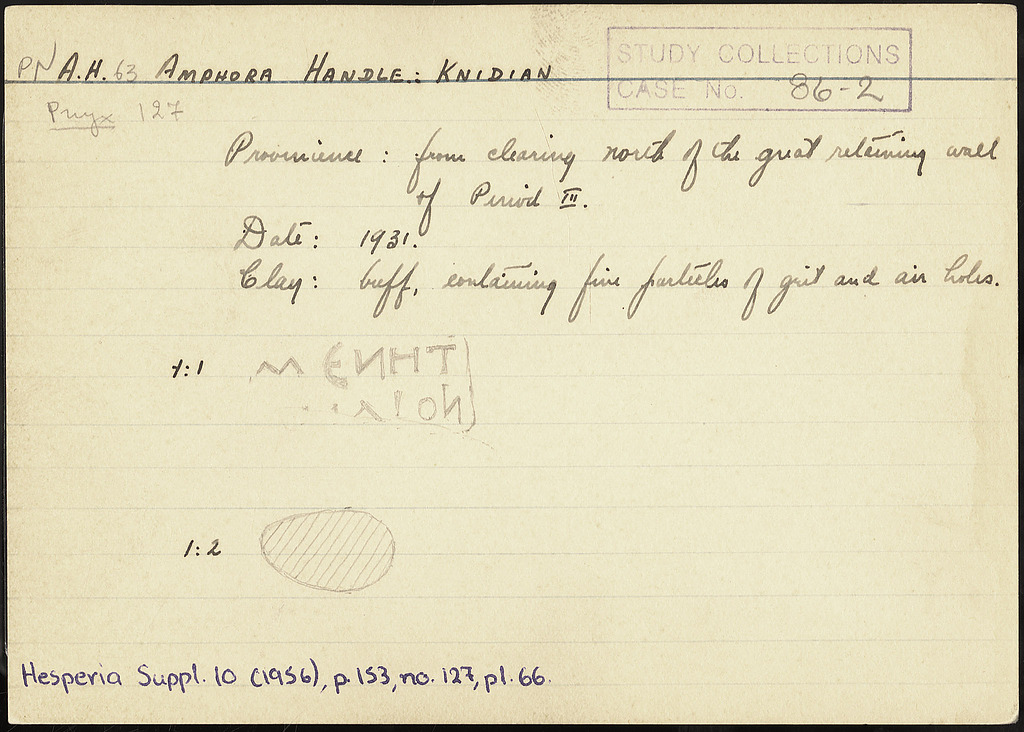 PN A.H. 63 AMPHORA HANDLE: KNIDIAN
STUDY COLLECTIONS
CASE No. 86-2
Pnyx 127
Provinience : from clearing north of the great retaining wall
of Period III.
Date: 1931.
Clay: buff, containing fine particles of grit and air holes.
1:1
1:2
Hesperia Suppl. 10 (1956), p. 153, no. 127, pl. 66.